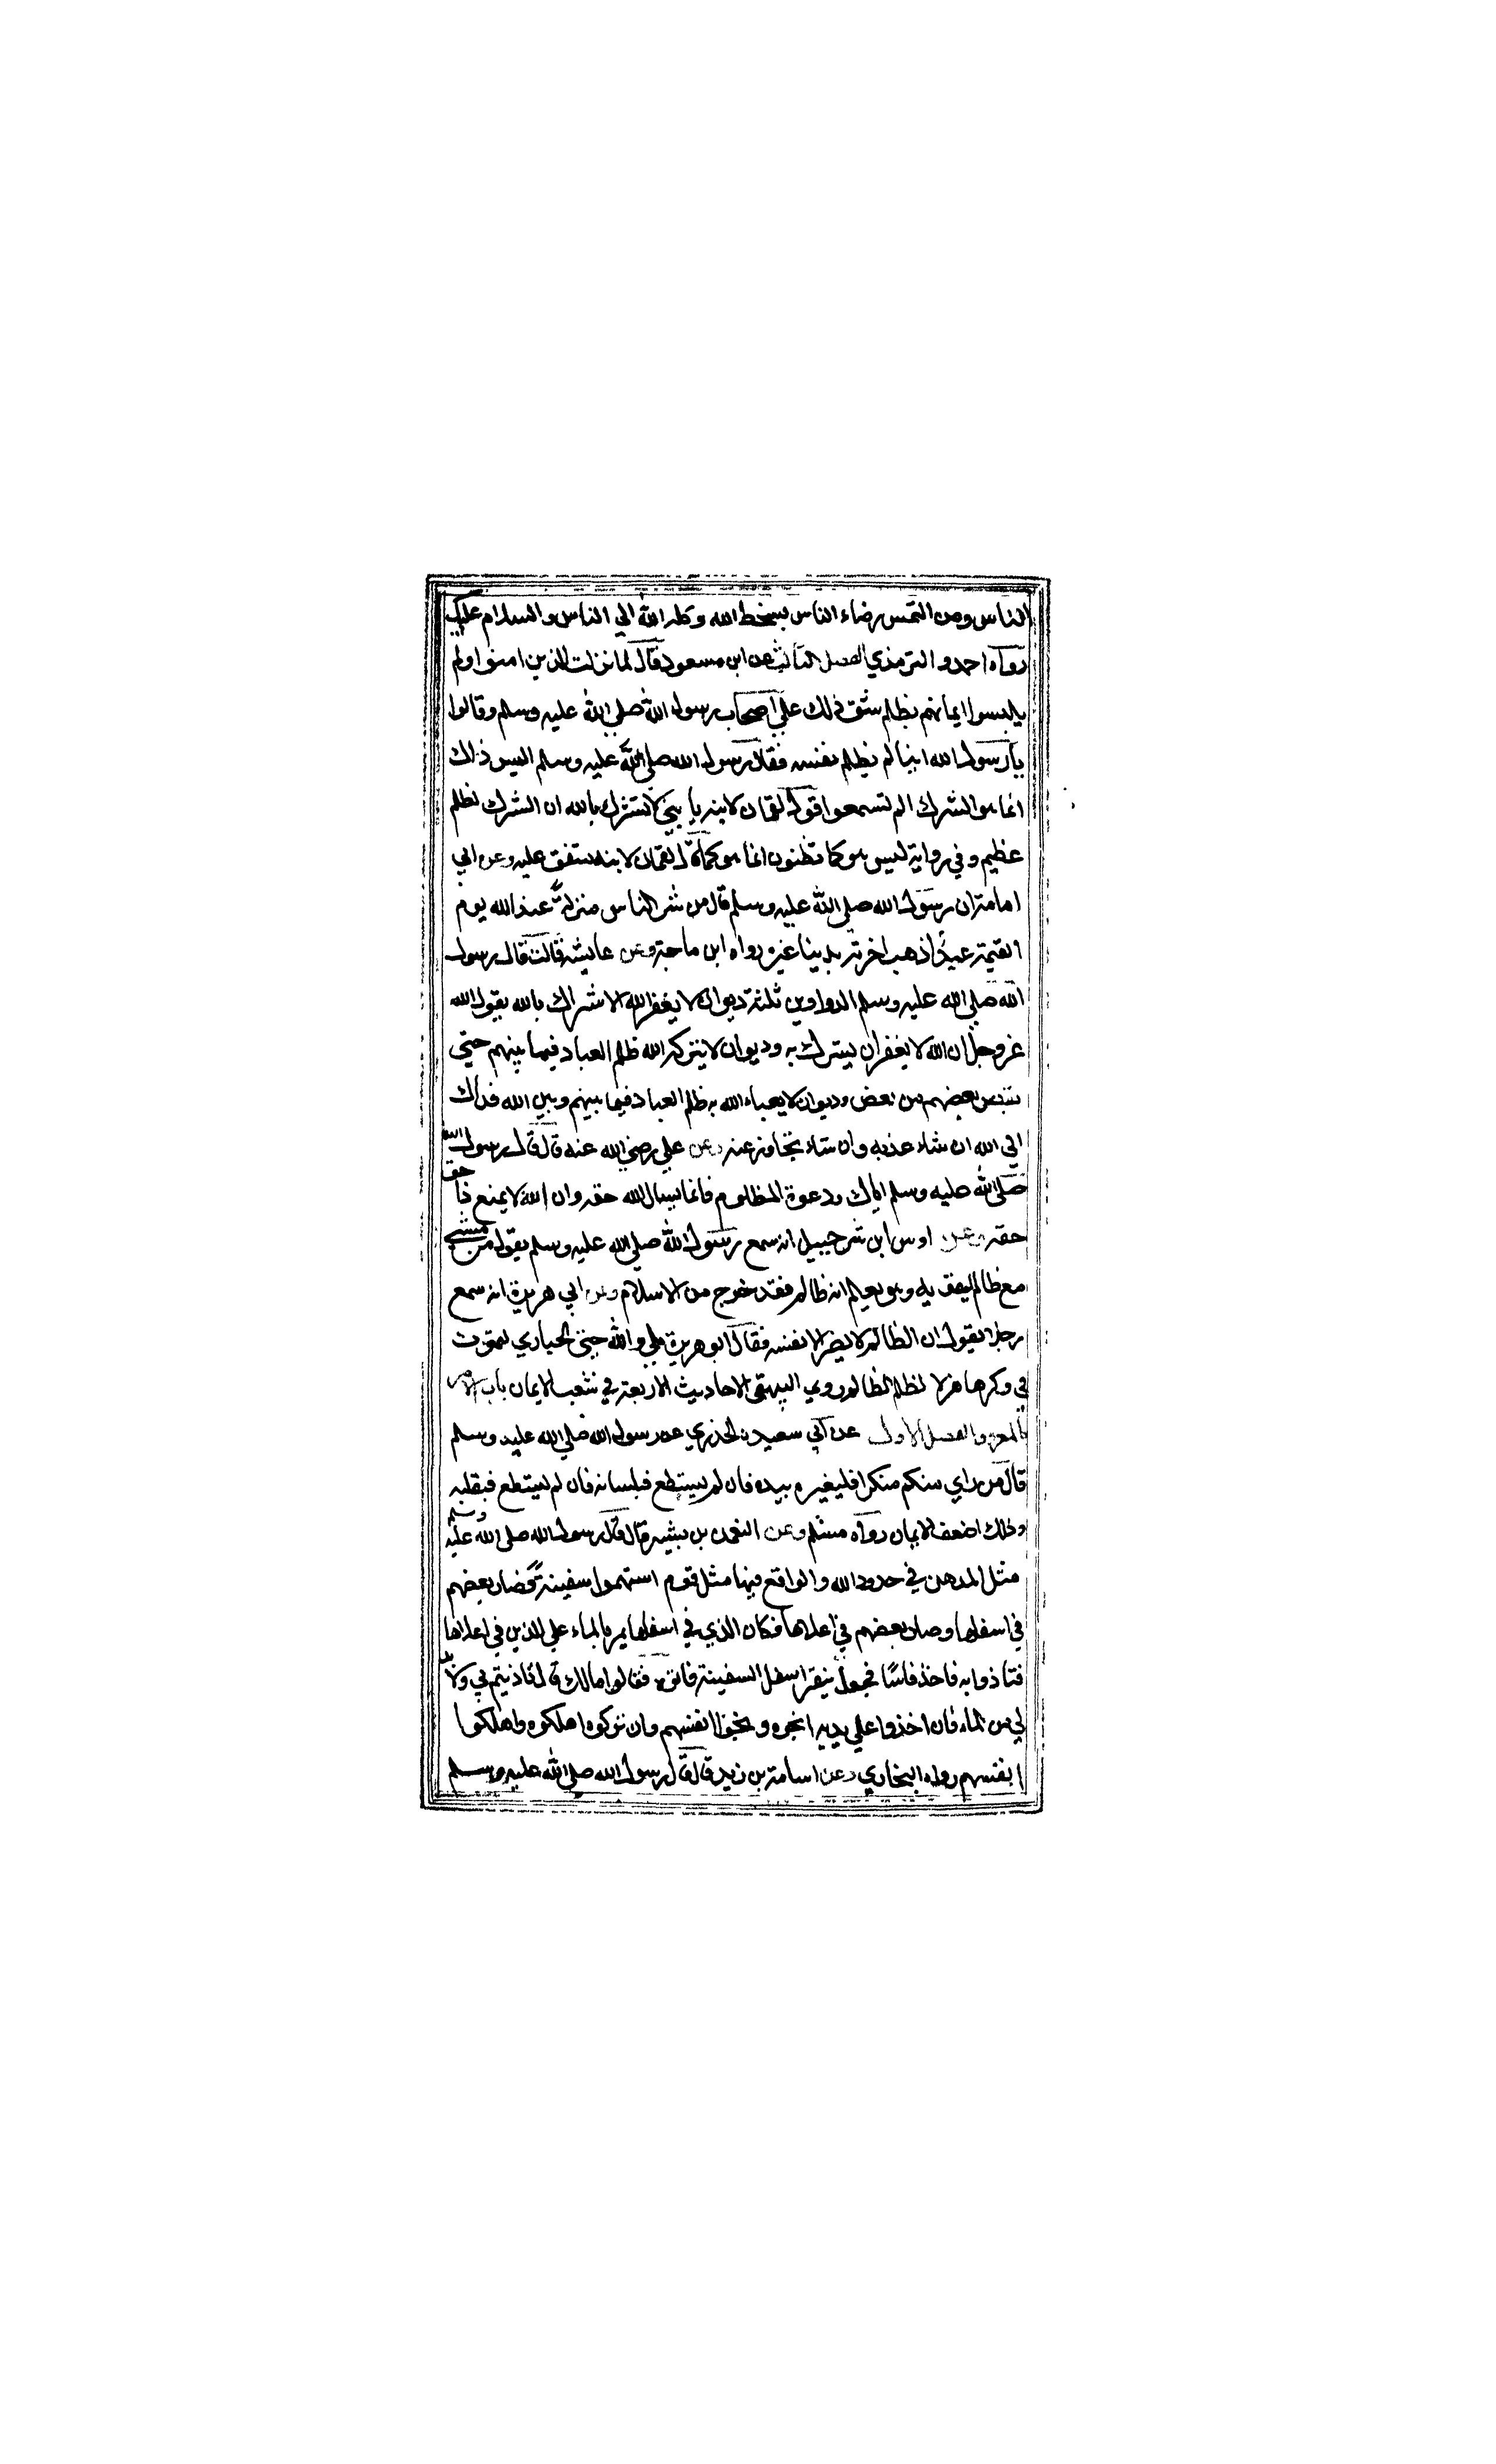 الناس ومن التمس رضاء الناس بسخط الله وكله الله الي الناس والسلام عليك
رواه احمد والترمذي الفصل الثالث عن ابن مسعود قال لما نزلت الذين امنوا ولم
يلبسوا ايمانهم بظلم شق ذلك علي اصحاب رسول الله صلي الله عليه وسلم وقالوا
يا رسول الله اينا لم يظلم نفسه فقال رسول الله صلي الله عليه وسلم اليس ذلك
انما هو الشرك الم تسمعوا قول لقمان لابنه يا بني لا تشرك بالله ان الشرك لظلم
عظيم وفي رواية ليس هو كما تظنون انما هو كما قال لقمان لابنه متفق عليه وعن ابي
امامة ان رسول الله صلي الله عليه وسلم قال من شر الناس منزلة عند الله يوم
القيمة عبد اذهب اخرته بدينا غيره رواه ابن ماجة وعن عايشة قالت قال رسول
الله صلي الله عليه وسلم الدواوين ثلثة ديوان لا يغفر الله الاشراك بالله يقول الله
عز وجل ان الله لا يغفر ان يشرك به وديوان لا يتركه الله ظلم العباد فيما بينهم حتي
يقتص بعضهم من بعض وديوان لا يعباء الله به ظلم العباد فيما بينهم وبين الله فذاك
الي الله ان شاء عذبه وان شاء تجاوز عنه وعن علي رضي الله عنه قال قال رسول الله
صلي الله عليه وسلم اياك ودعوة المظلوم فانما يسال الله حقه وان الله لا يمنع ذا حق
حقه وعن اوس ابن شرحبيل انه سمع رسول الله صلي الله عليه وسلم يقول من مشي
مع ظالم ليقويه وهو يعلم انه ظالم فقد خرج من الاسلام وعن ابي هريرة انه سمع
رجلا يقول ان الظالم لا يضر الا نفسه فقال ابو هريرة بلي والله حتي الحباري لتموت
في وكرها هزلا لظلم الظالم روي البيهقي الاحاديث الاربعة في شعب الايمان باب الامر
بالمعروف الفصل الاول عن ابي سعيد الخذري عن رسول الله صلي الله عليه وسلم
قال من راي منكم منكرا فليغيره بيده فان لم يستطع فبلسانه فان لم يستطع فبقلبه
وذلك اضعف الايمان رواه مسلم وعن النعمن بن بشير قال قال رسول الله صلي الله عليه وسلم
مثل المدهن في حدود الله والواقع فيها مثل قوم استهموا سفينة فصار بعضهم
في اسفلها وصار بعضهم في اعلاها فكان الذي في اسفلها يمر بالماء علي الذين في اعلاها
فتاذوا به فاخذ فاسا فجعل ينقر اسفل السفينة فاتوه فقالوا مالك قال تاذيتم بي ولا بد
لي من الماء فان اخذوا علي يديه انجوه ونجوا انفسهم وان تركوه اهلكوه واهلكوا
انفسهم رواه البخاري وعن اسامة بن زيد قال قال رسول الله صلي الله عليه وسلم